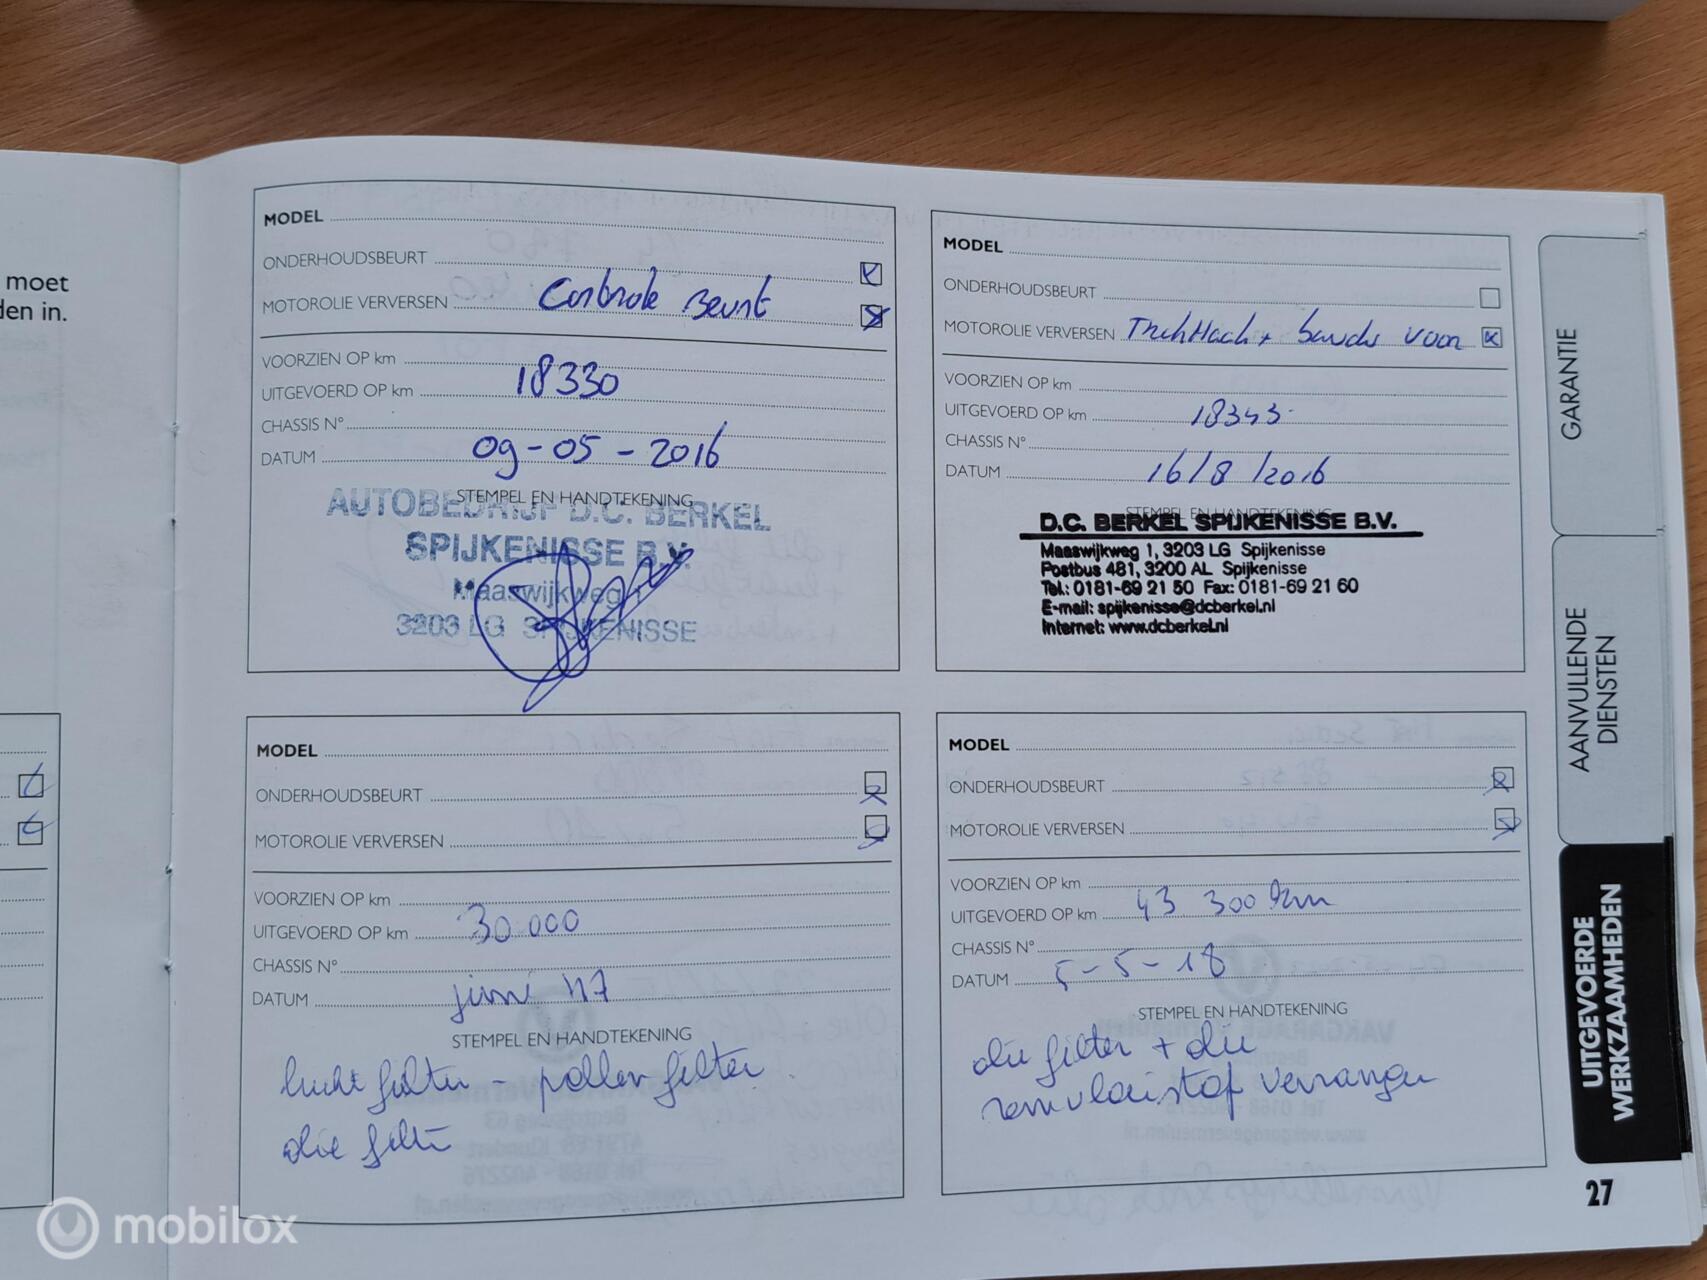 moet
den in.
MODEL
ONDERHOUDSBEURT
MOTOROLIE VERVERSEN Controle Beurt
VOORZIEN OP km
UITGEVOERD OP km 18330
CHASSIS N°
DATUM 09-05-2016
STEMPEL EN HANDTEKENING
AUTOBEDRIJF D.C. BERKEL
SPIJKENISSE B.V.
Maaswijkweg 1
3203 LG SPIJKENISSE
MODEL
ONDERHOUDSBEURT
MOTOROLIE VERVERSEN voor
VOORZIEN OP km
UITGEVOERD OP km 18343
CHASSIS N°
DATUM 16/8/2016
STEMPEL EN HANDTEKENING
D.C. BERKEL SPIJKENISSE B.V.
Maaswijkweg 1, 3203 LG Spijkenisse
Postbus 481, 3200 AL Spijkenisse
Tel.: 0181-69 21 50 Fax: 0181-69 21 60
E-mail: spijkenisse@dcberkel.nl
Internet: www.dcberkel.nl
MODEL
ONDERHOUDSBEURT
MOTOROLIE VERVERSEN
VOORZIEN OP km
UITGEVOERD OP km 30.000
CHASSIS N°
DATUM juni '17
STEMPEL EN HANDTEKENING
lucht filter - pollen filter
olie filter
MODEL
ONDERHOUDSBEURT
MOTOROLIE VERVERSEN
VOORZIEN OP km
UITGEVOERD OP km 43 300 km
CHASSIS N°
DATUM 5-5-18
STEMPEL EN HANDTEKENING
olie filter + olie
remvloeistof vervangen
GARANTIE
AANVULLENDE
DIENSTEN
UITGEVOERDE
WERKZAAMHEDEN
27
mobilox